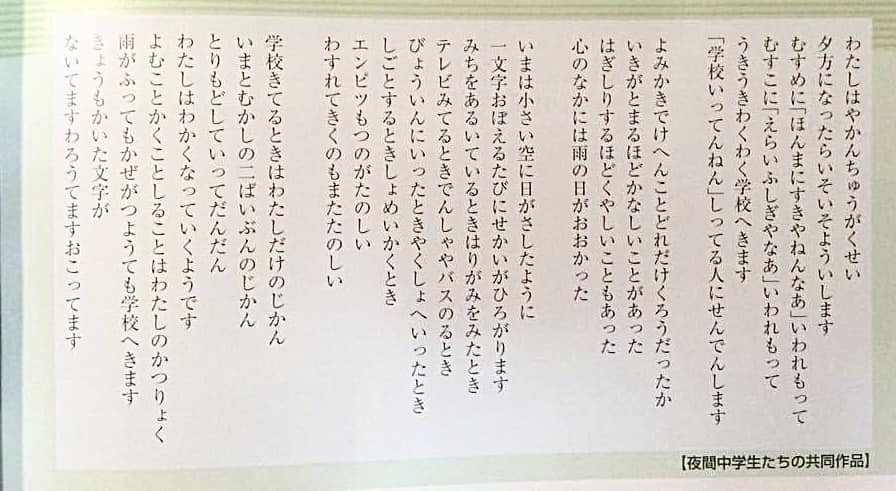 わたしはやかんちゅうがくせい
夕方になったらいそいそよういします
むすめに「ほんまにすきやねんなあ」いわれもって
むすこに「えらいふしぎやなあ」いわれもって
うきうきわくわく学校へきます
「学校いってんねん」しってる人にせんでんします
よみかきでけへんことどれだけくろうだったか
いきがとまるほどかなしいことがあった
はぎしりするほどくやしいこともあった
心のなかには雨の日がおおかった
いまは小さい空に日がさしたように
一文字おぼえるたびにせかいがひろがります
みちをあるいているときはりがみをみたとき
テレビみてるときでんしゃやバスのるとき
びょういんにいったときやくしょへいったとき
しごとするときしょめいかくとき
エンピツもつのがたのしい
わすれてきくのもまたたのしい
学校きてるときはわたしだけのじかん
いまとむかしの二ばいぶんのじかん
とりもどしていってだんだん
わたしはわかくなっていくようです
よむことかくことしることはわたしのかつりょく
雨がふってもかぜがつようても学校へきます
きょうもかいた文字が
ないてますわろうてますおこってます
【夜間中学生たちの共同作品】